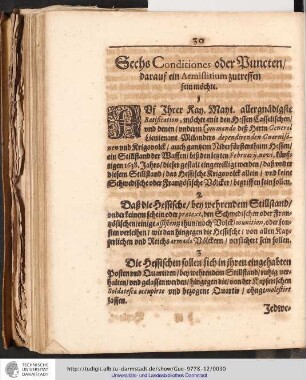 30
Sechs Conditiones oder Puncten/
darauf ein Armistitium zutreffen
sein möchte.
1
AUf Ihrer Kay. Mayt. allergnädigste
Ratification, möchte mit den Hessen Casselischen/
und denen/ under Commando deß Herrn General
Lieutenant Milandro dependirenden Guarnison-
en und Krigsvolck/ auch gantzem Niderfürstenthum Hessen/
ein Stillstand der Waffen/ biß den letzten Februarij novi, künff-
tigen 1638. Jahrs/ dieser gestalt eingewilliget werden/ daß under
diesem Stillstand/ das Hessische Krigsvolck allein/ und keine
Schwedische oder Frantzösische Völcker/ begriffen sein sollen.
2.
Daß die Hessische/ bey wehrendem Stillstand/
under keinem schein oder prætext, den Schwedischen oder Fran-
tzösischen einige assistentz thun/ noch Volck/ munition, oder son-
sten verleihen/ wie dan hingegen die Hessische/ von allen Kay-
serlichen und Reichs armada Völckern/ versichert sein sollen.
3.
Die Hessischen sollen sich in ihren eingehabten
Posten und Quartiren/ bey wehrendem Stillstand/ ruhig ver-
halten/ und gelassen werden/ hingegen die/ von der Kayserischen
Soldatesca occupirte und bezogene Quartir/ ohngemolestirt
lassen.
Jedwe-
TECHNISCHE
UNIVERSITÄT
DARMSTADT
http://tudigit.ulb.tu-darmstadt.de/show/Gue-9778-12/0030
Universitäts- und Landesbibliothek Darmstadt